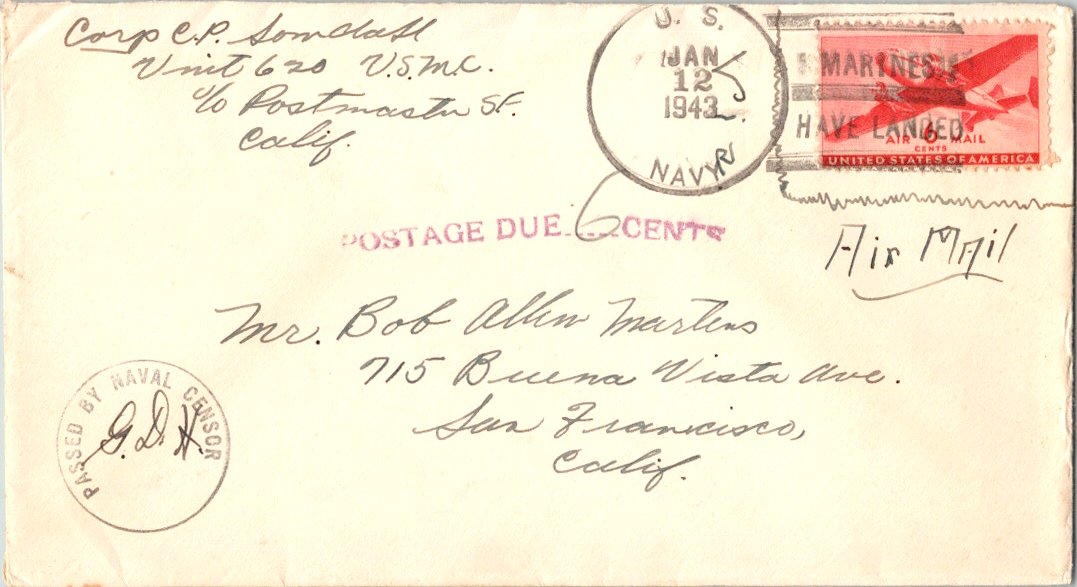 Corp C.P. Somdahl
Unit 620 U.S.M.C.
c/o Postmaster S.F.
Calif.
U. S.
JAN
12
1943
NAVY
MARINES
HAVE LANDED
AIR 6 MAIL
CENTS
UNITED STATES OF AMERICA
POSTAGE DUE 6 CENTS
Air Mail
Mr. Bob Allen Martens
715 Buena Vista Ave.
San Francisco,
Calif.
PASSED BY NAVAL CENSOR
G.D.H.